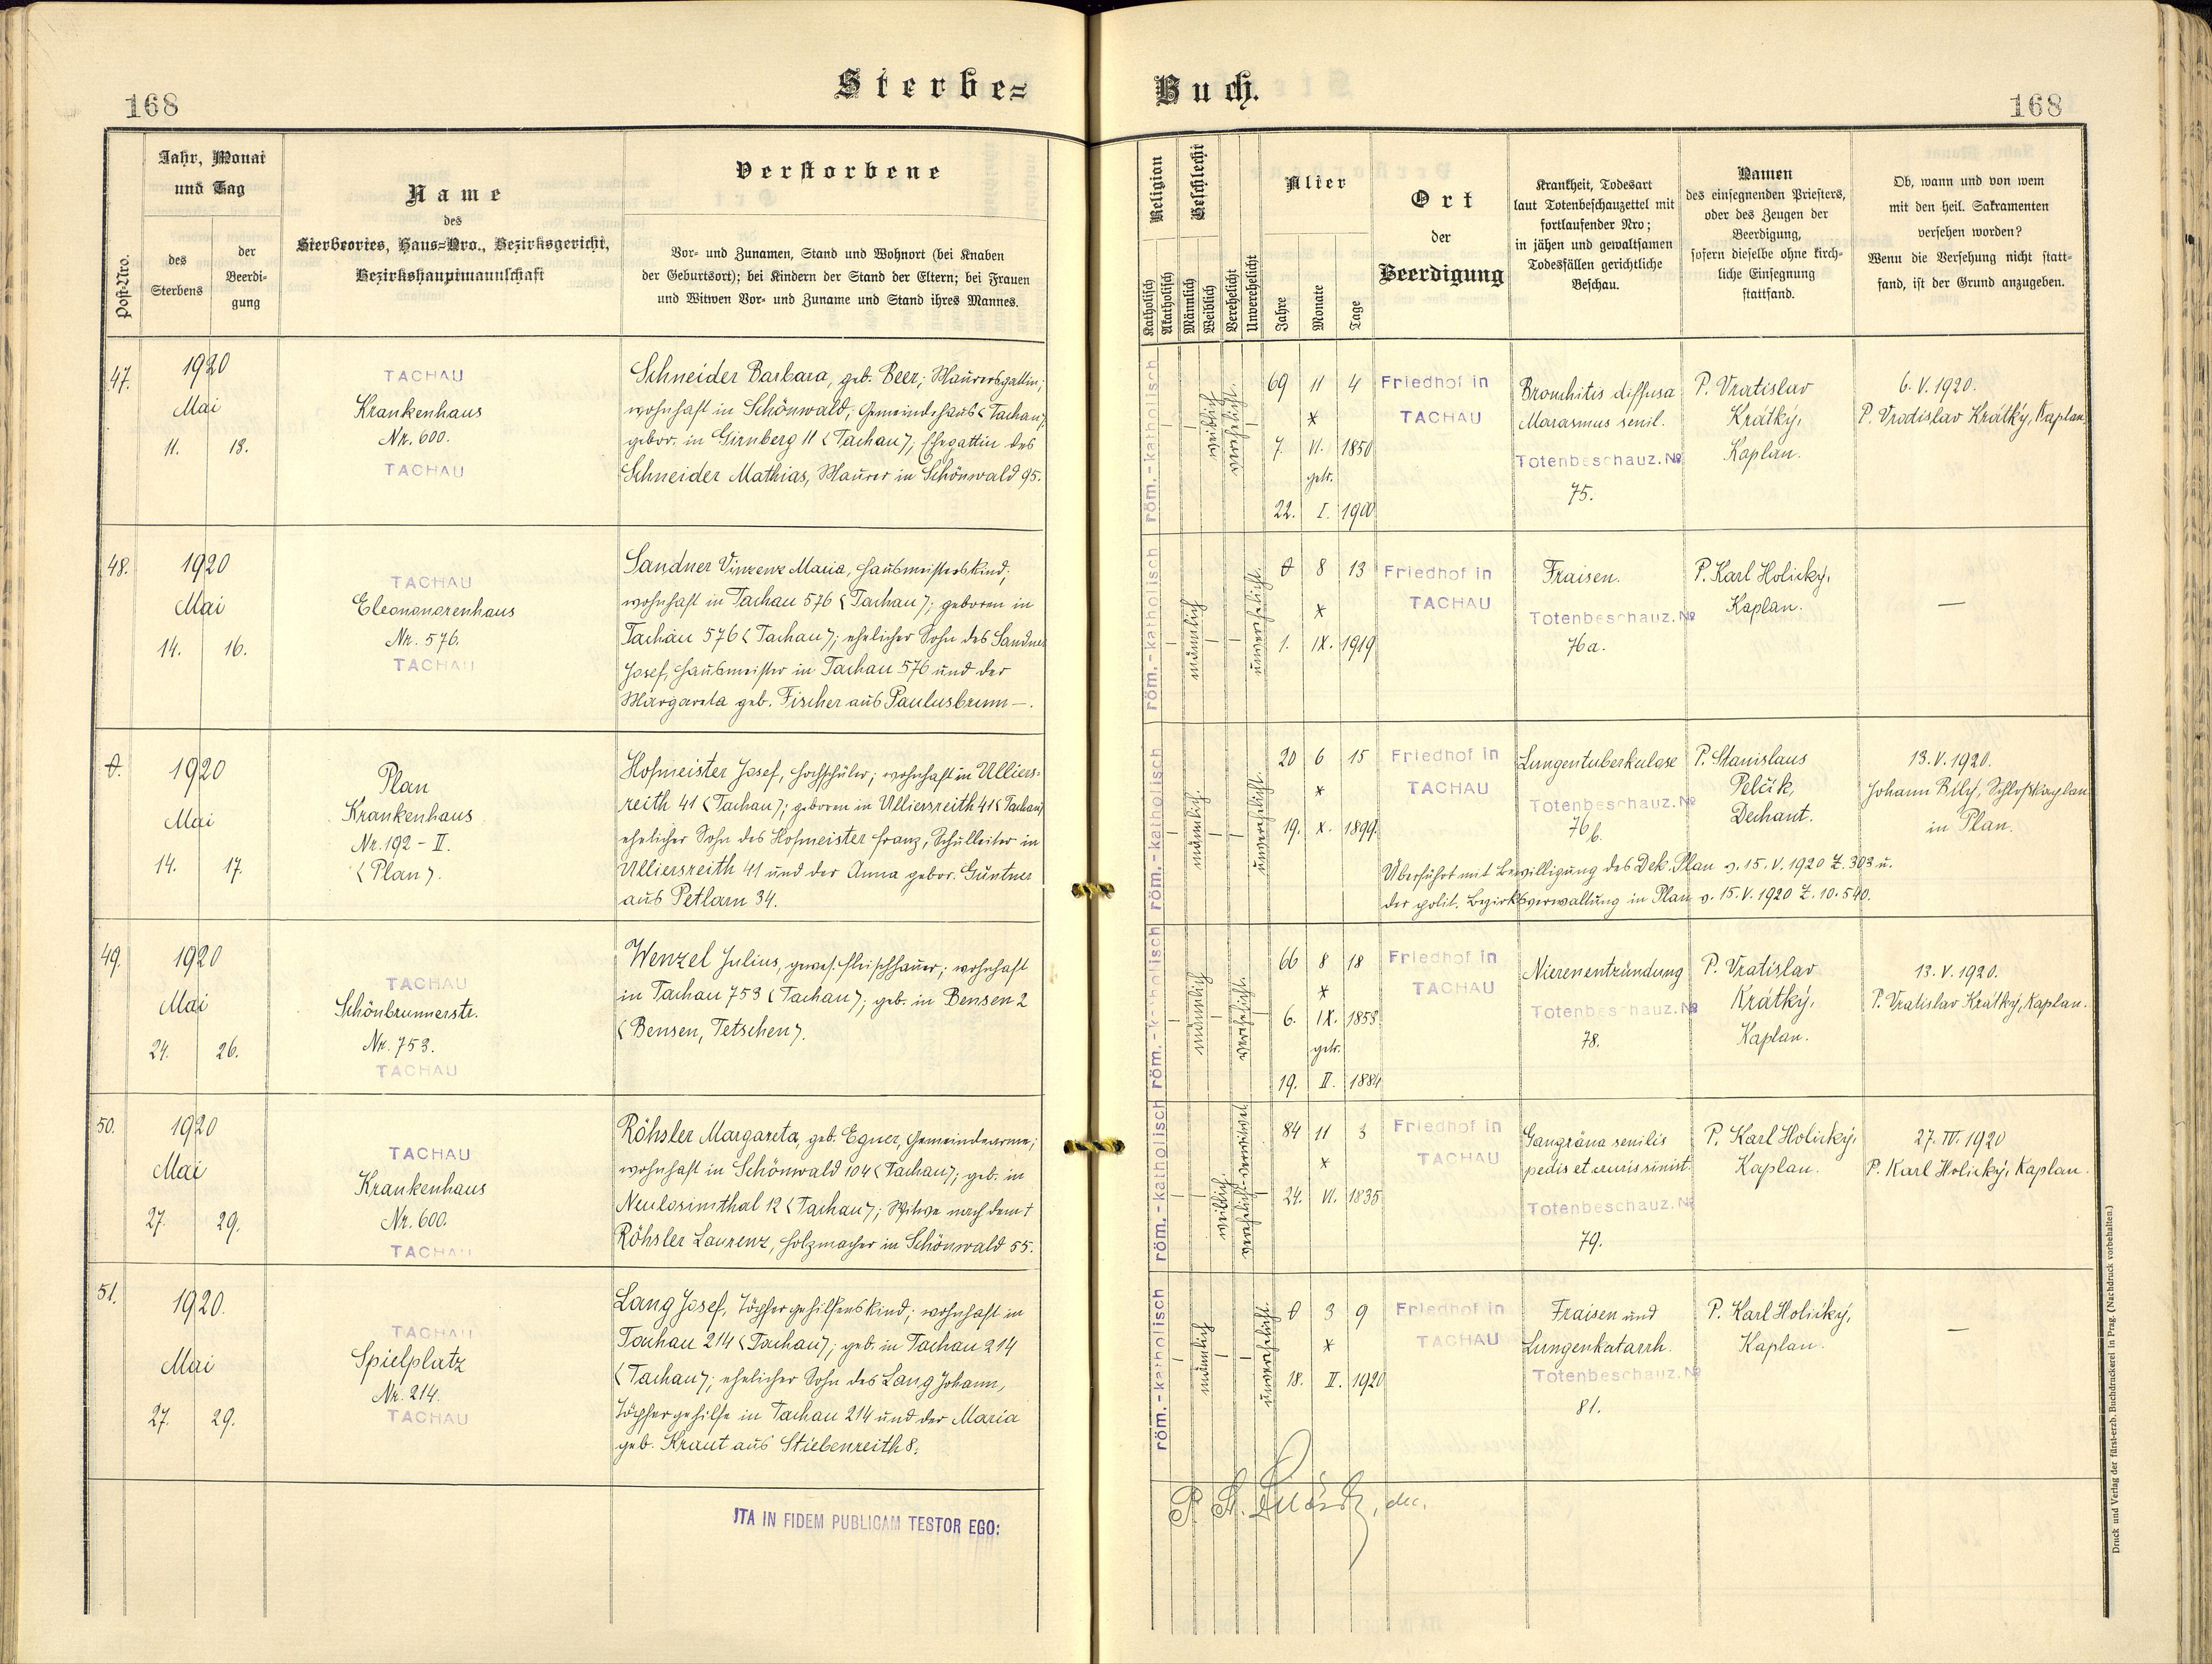 168
Sterbe=
Buch.
168
Post-Nro.
Jahr, Monat
und Tag
des
Sterbens
der
Beerdi-
gung
Name
des
Sterbeortes, Haus=Nro., Bezirksgericht,
Bezirkshauptmannschaft
Verstorbene
Vor- und Zunamen, Stand und Wohnort (bei Knaben
der Geburtsort); bei Kindern der Stand der Eltern; bei Frauen
und Witwen Vor- und Zuname und Stand ihres Mannes.
Religion
Katholisch
Akatholisch
Geschlecht
Männlich
Weiblich
Verehelicht
Unverehelicht
Alter
Jahre
Monate
Tage
Ort
der
Beerdigung
Krankheit, Todesart
laut Totenbeschauzettel mit
fortlaufender Nro;
in jähen und gewaltsamen
Todesfällen gerichtliche
Beschau.
Namen
des einsegnenden Priesters,
oder des Zeugen der
Beerdigung,
sofern dieselbe ohne kirch-
liche Einsegnung
stattfand.
Ob, wann und von wem
mit den heil. Sakramenten
versehen worden?
Wenn die Versehung nicht statt-
fand, ist der Grund anzugeben.
47.
1920
Mai
11. 13.
TACHAU
Krankenhaus
Nr. 600.
TACHAU
Schneider Barbara, geb. Beer; Maurersgattin;
wohnhaft in Schönwald, Gemeindehaus (Tachau);
gebor. in Girnberg 11 (Tachau); Ehegattin des
Schneider Mathias, Maurer in Schönwald 95.
röm.-katholisch
weiblich
verehelicht.
69 11 4
*
7. VI. 1850
getr.
22. I. 1900
Friedhof in
TACHAU
Bronchitis diffusa
Marasmus senil.
Totenbeschauz. №
75.
P. Vratislav
Krátký,
Kaplan.
6. V. 1920.
P. Vratislav Krátký, Kaplan.
48.
1920
Mai
14. 16.
TACHAU
Eleononorenhaus
Nr. 576.
TACHAU
Sandner Vinzenz Maria, Hausmeisterskind;
wohnhaft in Tachau 576 (Tachau); geboren in
Tachau 576 (Tachau); ehelicher Sohn des Sandner
Josef, Hausmeister in Tachau 576 und der
Margareta geb. Fischer aus Paulusbrunn —.
röm.-katholisch
männlich
unverehelicht.
0 8 13
*
1. IX. 1919
Friedhof in
TACHAU
Fraisen.
Totenbeschauz. №
76a.
P. Karl Holický,
Kaplan.
—
0.
1920
Mai
14. 17.
Plan
Krankenhaus
Nr. 192 – II.
(Plan).
Hofmeister Josef, Hochschüler; wohnhaft in Ulliers-
reith 41 (Tachau); geboren in Ulliersreith 41 (Tachau)
ehelicher Sohn des Hofmeister Franz, Schulleiter in
Ulliersreith 41 und der Anna gebor. Güntner
aus Petlarn 34.
röm.-katholisch
männlich.
unverehelicht.
20 6 15
*
19. X. 1899.
Friedhof in
TACHAU
Lungentuberkulose
Totenbeschauz. №
76b.
P. Stanislaus
Pelčik,
Dechant.
13. V. 1920.
Johann Bilý, Schloßkaplan
in Plan.
Überführt mit Bewilligung des Dek. Plan v. 15. V. 1920 Z. 303 u.
der polit. Bezirksverwaltung in Plan v. 15. V. 1920 Z. 10.540.
49.
1920
Mai
24. 26.
TACHAU
Schönbrunnerstr.
Nr. 753.
TACHAU
Wenzel Julius, gewes. Fleischhauer; wohnhaft
in Tachau 753 (Tachau); geb. in Bensen 2
(Bensen, Tetschen).
röm.-katholisch
männlich
verehelicht.
66 8 18
*
6. IX. 1853
getr.
19. II. 1884
Friedhof in
TACHAU
Nierenentzündung
Totenbeschauz. №
78.
P. Vratislav
Krátký,
Kaplan.
13. V. 1920.
P. Vratislav Krátký, Kaplan.
50.
1920
Mai
27. 29.
TACHAU
Krankenhaus
Nr. 600.
TACHAU
Röhsler Margareta, geb. Egner, Gemeindearme;
wohnhaft in Schönwald 104 (Tachau); geb. in
Neulosimthal 12 (Tachau); Witwe nach dem †
Röhsler Laurenz, Holzmacher in Schönwald 55.
röm.-katholisch
weiblich.
verehelicht-verwitwet
84 11 3
*
24. VI. 1835
Friedhof in
TACHAU
Gangräna senilis
pedis et cruris sinist.
Totenbeschauz. №
79.
P. Karl Holický,
Kaplan.
27. IV. 1920
P. Karl Holický, Kaplan.
51.
1920.
Mai
27. 29.
TACHAU
Spielplatz
Nr. 214.
TACHAU
Lang Josef, Töpfergehilfenskind; wohnhaft in
Tachau 214 (Tachau); geb. in Tachau 214
(Tachau); ehelicher Sohn des Lang Johann,
Töpfergehilfe in Tachau 214 und der Maria
geb. Kraut aus Stiebenreith 8.
röm.-katholisch
männlich
unverehelicht.
0 3 9
*
18. II. 1920
Friedhof in
TACHAU
Fraisen und
Lungenkatarrh.
Totenbeschauz. №
81.
P. Karl Holický,
Kaplan.
—
ITA IN FIDEM PUBLICAM TESTOR EGO:
P. St. dec.
Druck und Verlag der fürst-erzb. Buchdruckerei in Prag. (Nachdruck vorbehalten.)